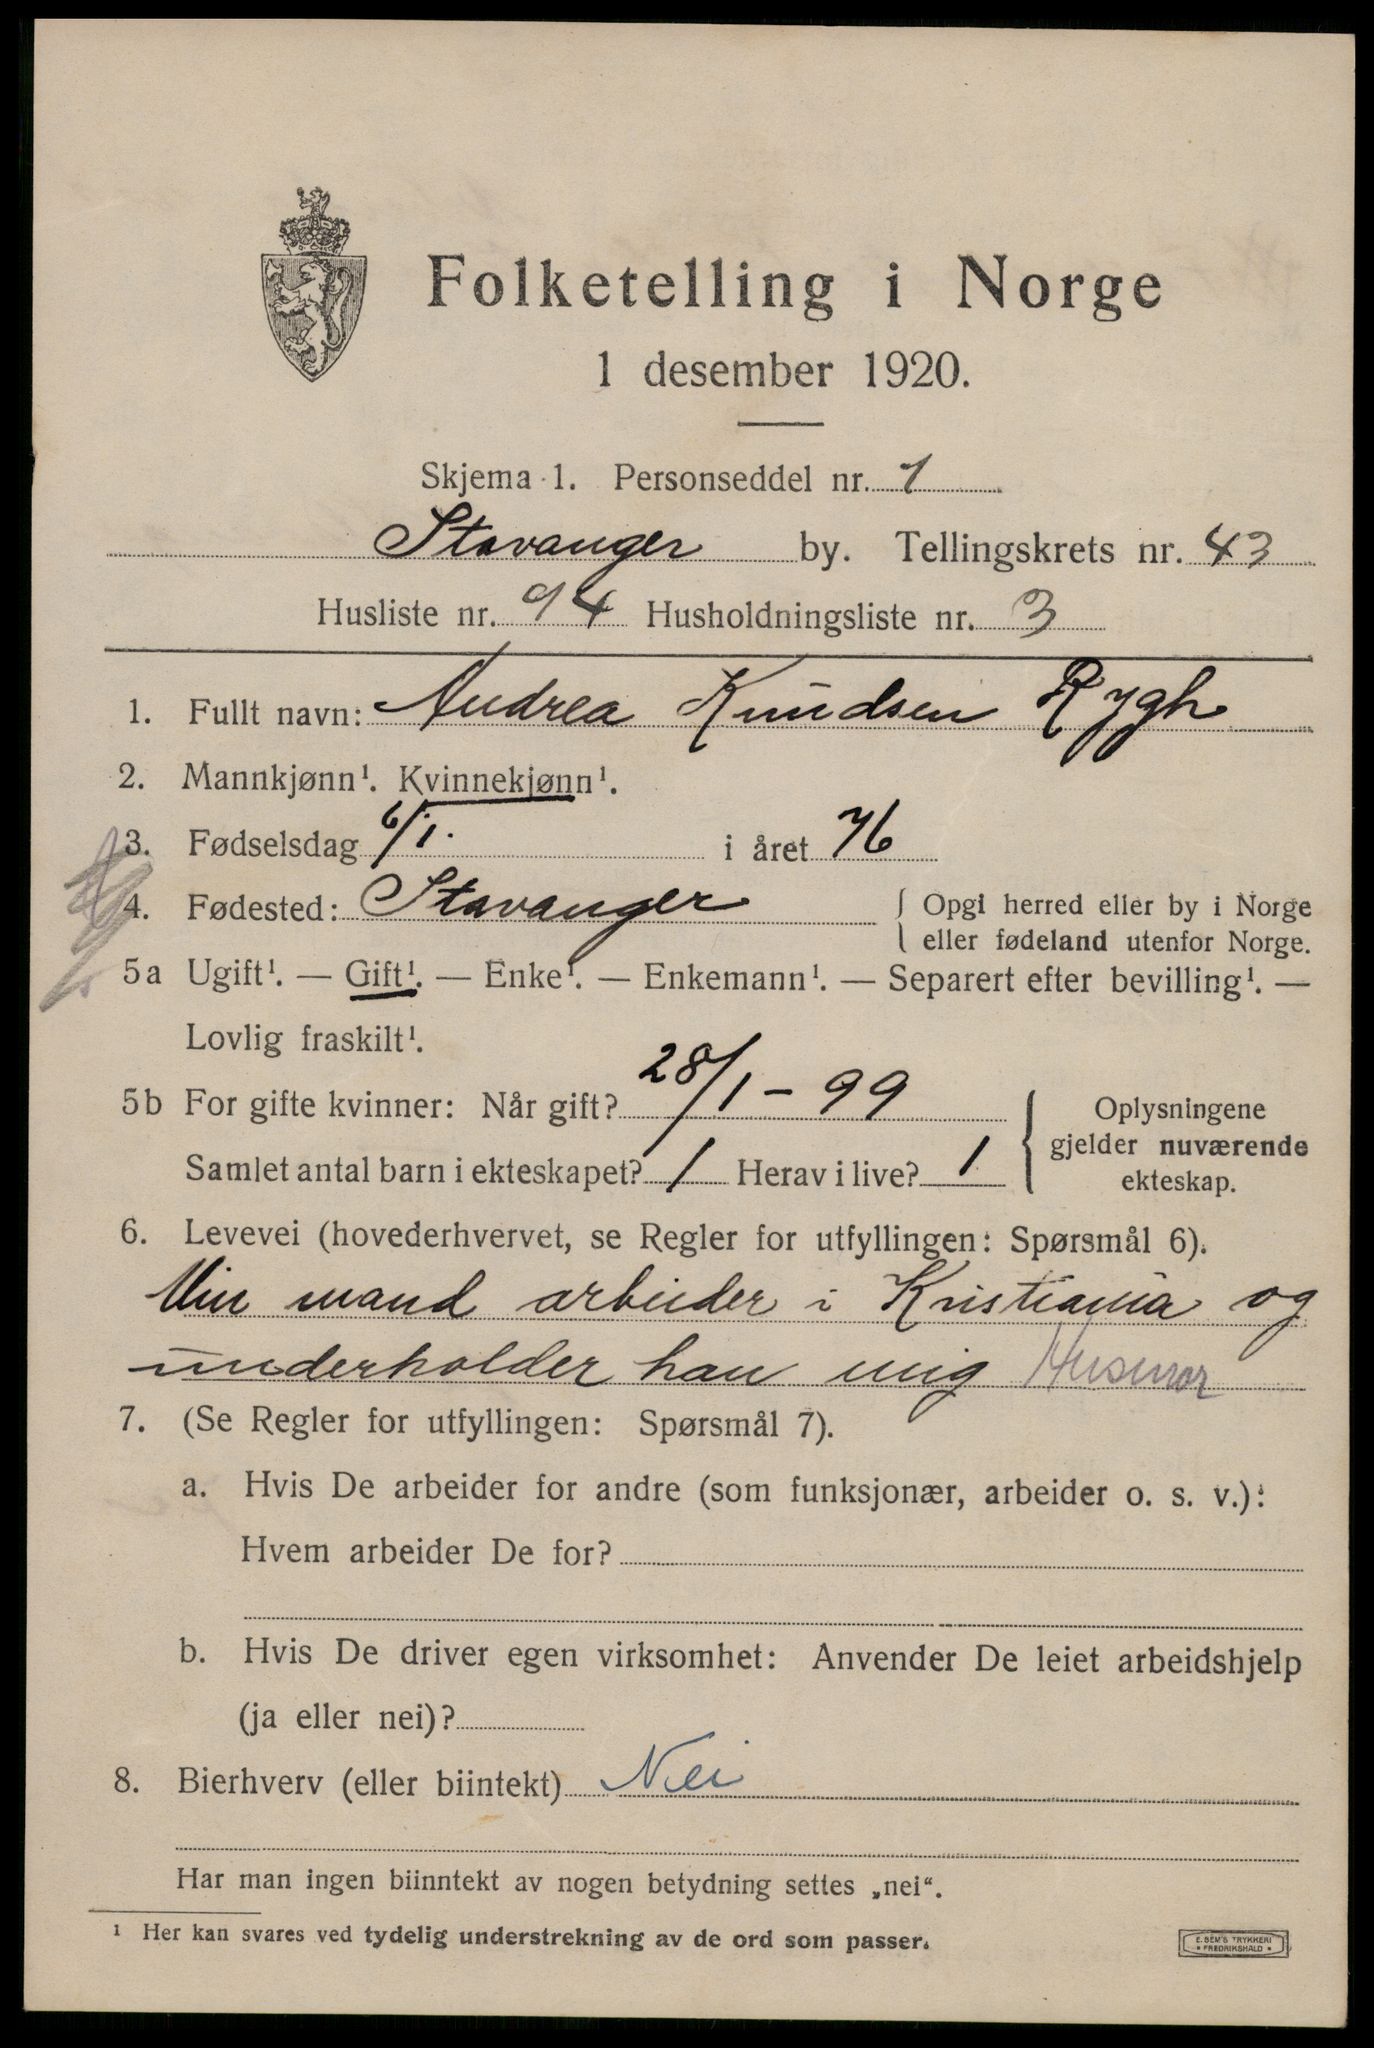 Folketelling i Norge
1 desember 1920.
Skjema 1. Personseddel nr. 1
Stavanger by. Tellingskrets nr. 43
Husliste nr. 94 Husholdningsliste nr. 3
1. Fullt navn: Andrea Knudsen Rygh
2. Mannkjønn¹. Kvinnekjønn¹.
3. Fødselsdag 6/1. i året 76
4. Fødested: Stavanger { Opgi herred eller by i Norge
eller fødeland utenfor Norge.
5a Ugift¹. — Gift¹. — Enke¹. — Enkemann¹. — Separert efter bevilling¹. —
Lovlig fraskilt¹.
5b For gifte kvinner: Når gift? 28/1 - 99
Samlet antal barn i ekteskapet? 1 Herav i live? 1
{ Oplysningene
gjelder nuværende
ekteskap.
6. Levevei (hovederhvervet, se Regler for utfyllingen: Spørsmål 6).
Min mand arbeider i Kristiania og
underholder han mig Husmor
7. (Se Regler for utfyllingen: Spørsmål 7).
a. Hvis De arbeider for andre (som funksjonær, arbeider o. s. v.):
Hvem arbeider De for?
b. Hvis De driver egen virksomhet: Anvender De leiet arbeidshjelp
(ja eller nei)?
8. Bierhverv (eller biintekt) Nei
Har man ingen biinntekt av nogen betydning settes „nei“.
¹ Her kan svares ved tydelig understrekning av de ord som passer.
E. SEM'S TRYKKERI
* FREDRIKSHALD *